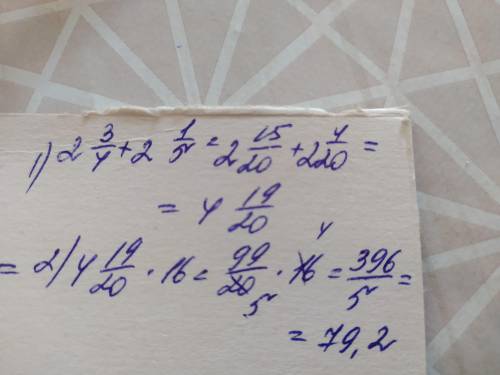 1) 2 3/4 + 2 1/5 = 2 15/20 + 2 4/20 =
= 4 19/20
= 2) 4 19/20 · 16 = 99/20 · 16 = 396/5 =
5 4
= 79,2